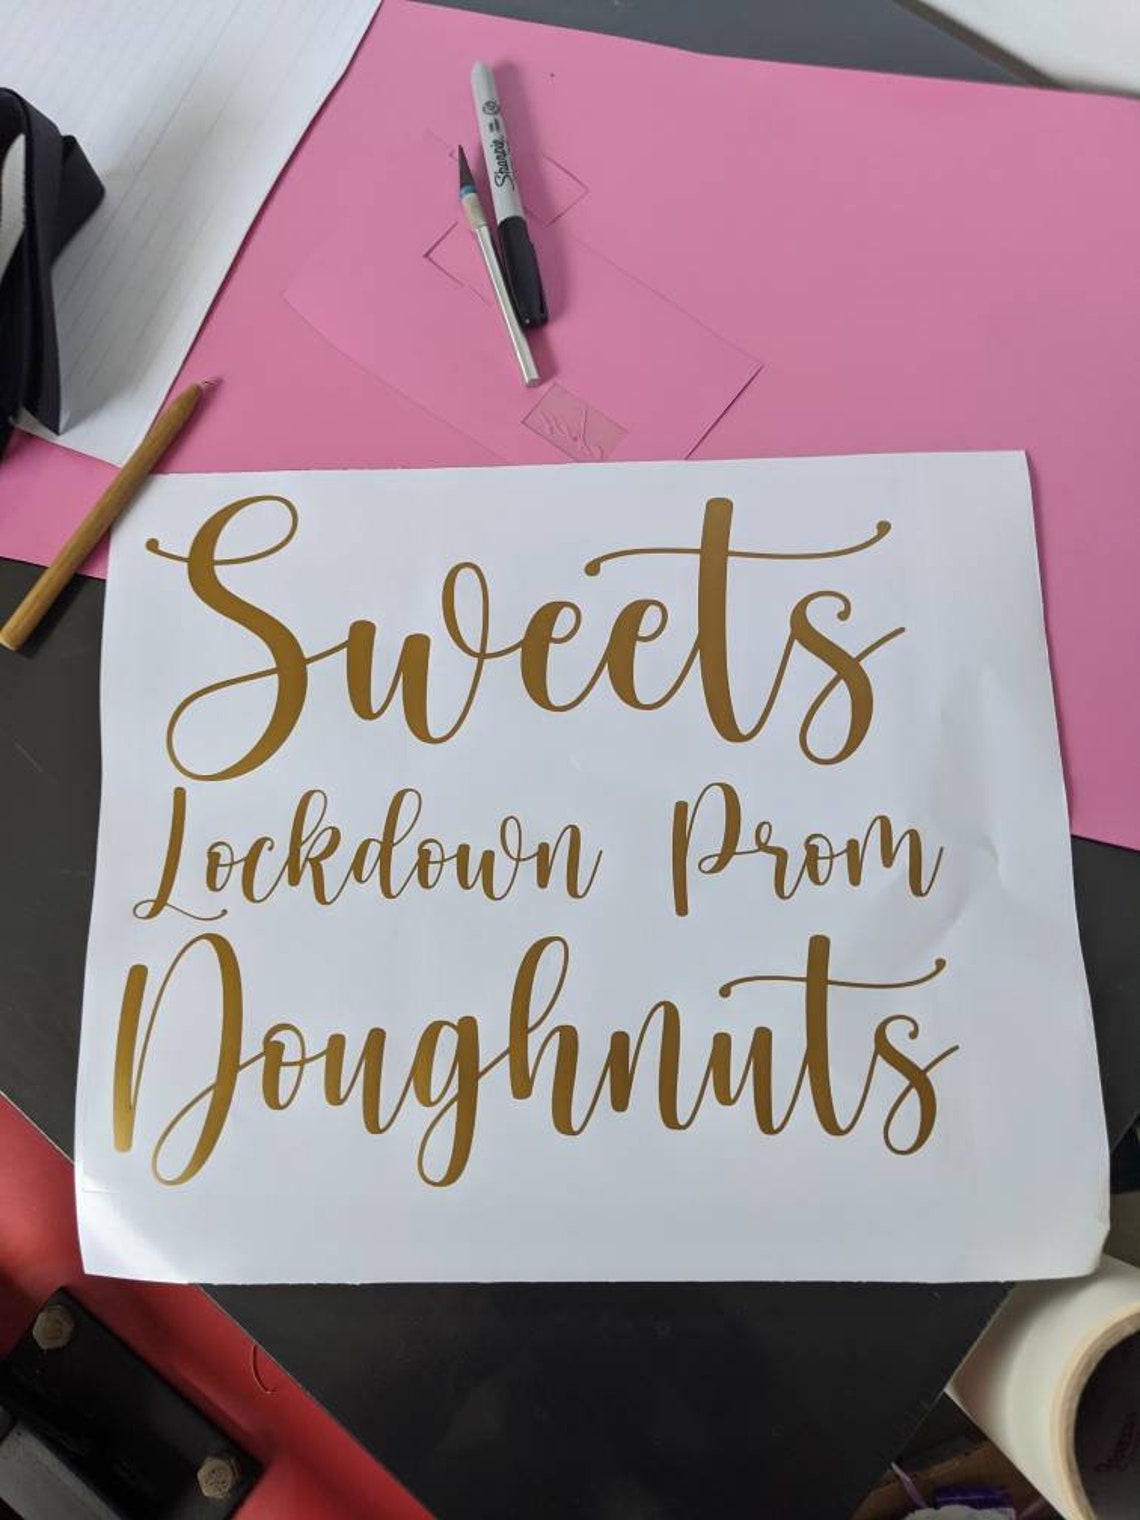 Sharpie
Sweets
Lockdown Prom
Doughnuts